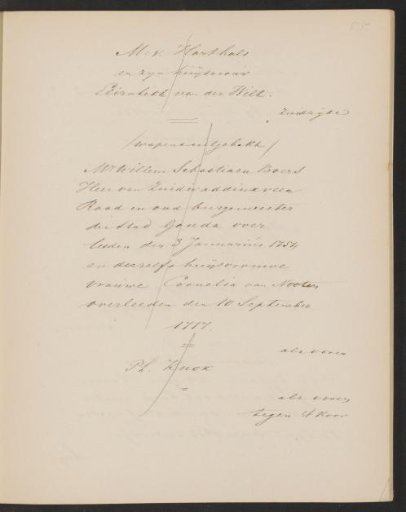 M. v. Harthals
en zijn huijsvrouw
Elizabeth van der Wilt.
Zuidzijde
(wapen uitgehakt)
Mr Willem Sebastiaan Boers
Heer van Zuidwaddinxveen
Raad en oud burgemeester
der Stad Gouda over
leeden den 3 Januarius 1754
en deszelfs huijsvrouwe
vrouwe Cornelia van Nooten
overleeden den 10 September
1777.
als voren
Ph. Knox
als voren
tegen 't Koor